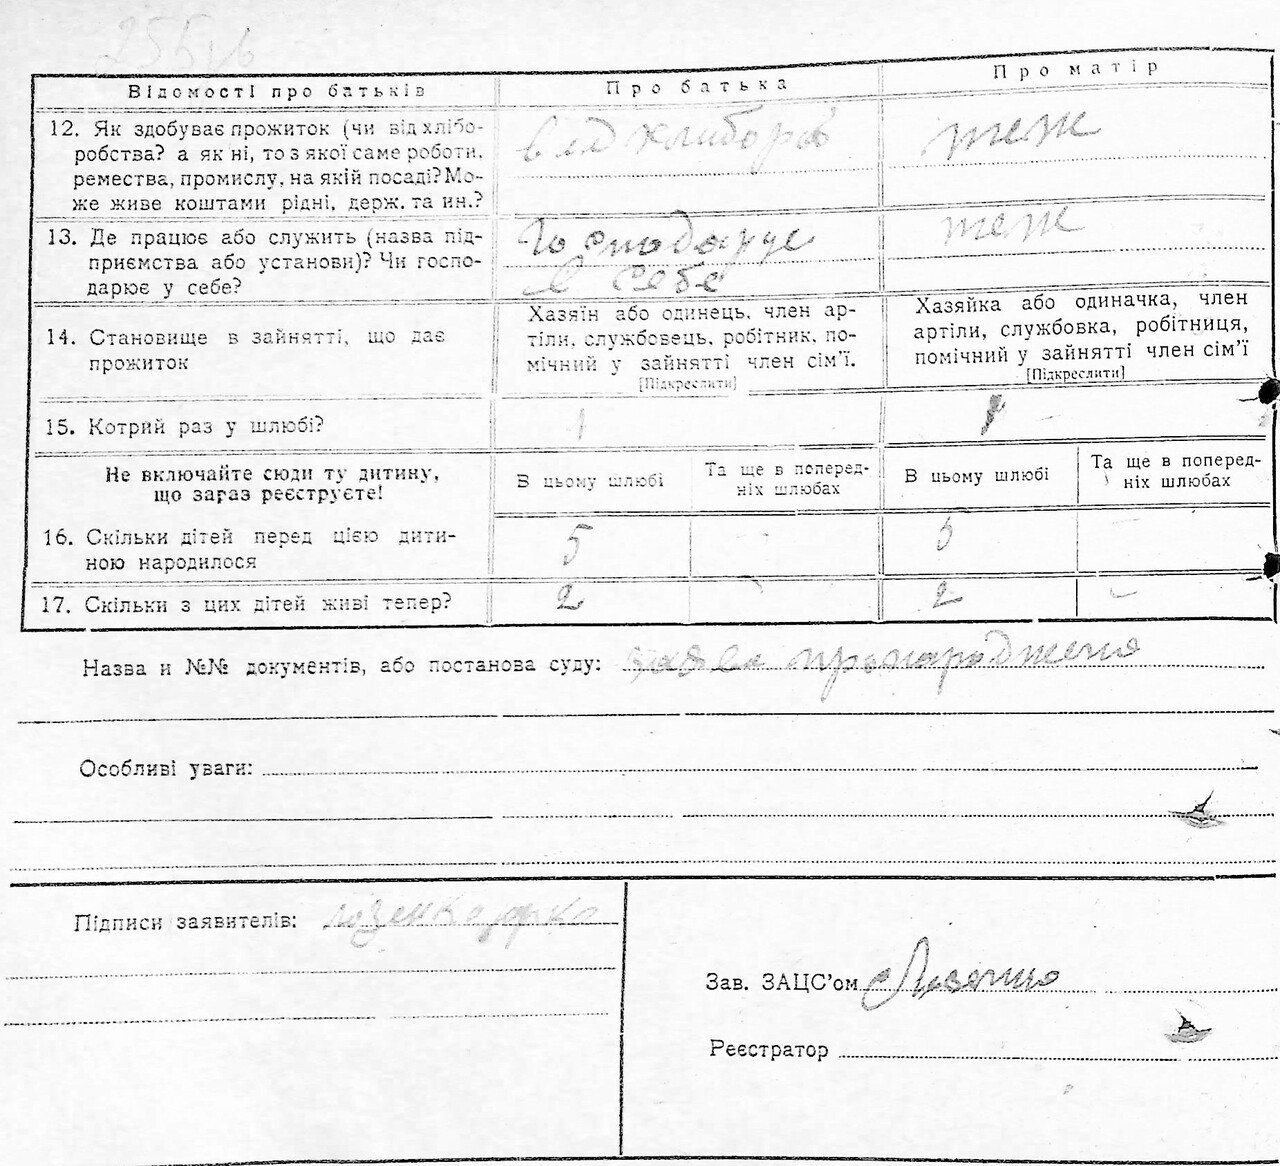 Відомості про батьків
Про батька
Про матір
12. Як здобуває прожиток (чи від хлібо-
робства? а як ні, то з якої саме роботи,
ремества, промислу, на якій посаді? Мо-
же живе коштами рідні, держ. та ин.?
теж
13. Де працює або служить (назва під-
приємства або установи)? Чи госпо-
дарює у себе?
Господарує
в себе
теж
14. Становище в зайнятті, що дає
прожиток
Хазяїн або одинець, член ар-
тіли, службовець, робітник, по-
мічний у зайнятті член сім’ї.
[Підкреслити]
Хазяйка або одиначка, член
артіли, службовка, робітниця,
помічний у зайнятті член сім’ї
[Підкреслити]
15. Котрий раз у шлюбі?
1
1
Не включайте сюди ту дитину,
що зараз реєструєте!
В цьому шлюбі
Та ще в поперед-
ніх шлюбах
В цьому шлюбі
Та ще в поперед-
ніх шлюбах
16. Скільки дітей перед цією дити-
ною народилося
5
5
17. Скільки з цих дітей живі тепер?
2
2
Назва и №№ документів, або постанова суду:
Особливі уваги:
Підписи заявителів:
Зав. ЗАЦС’ом
Реєстратор